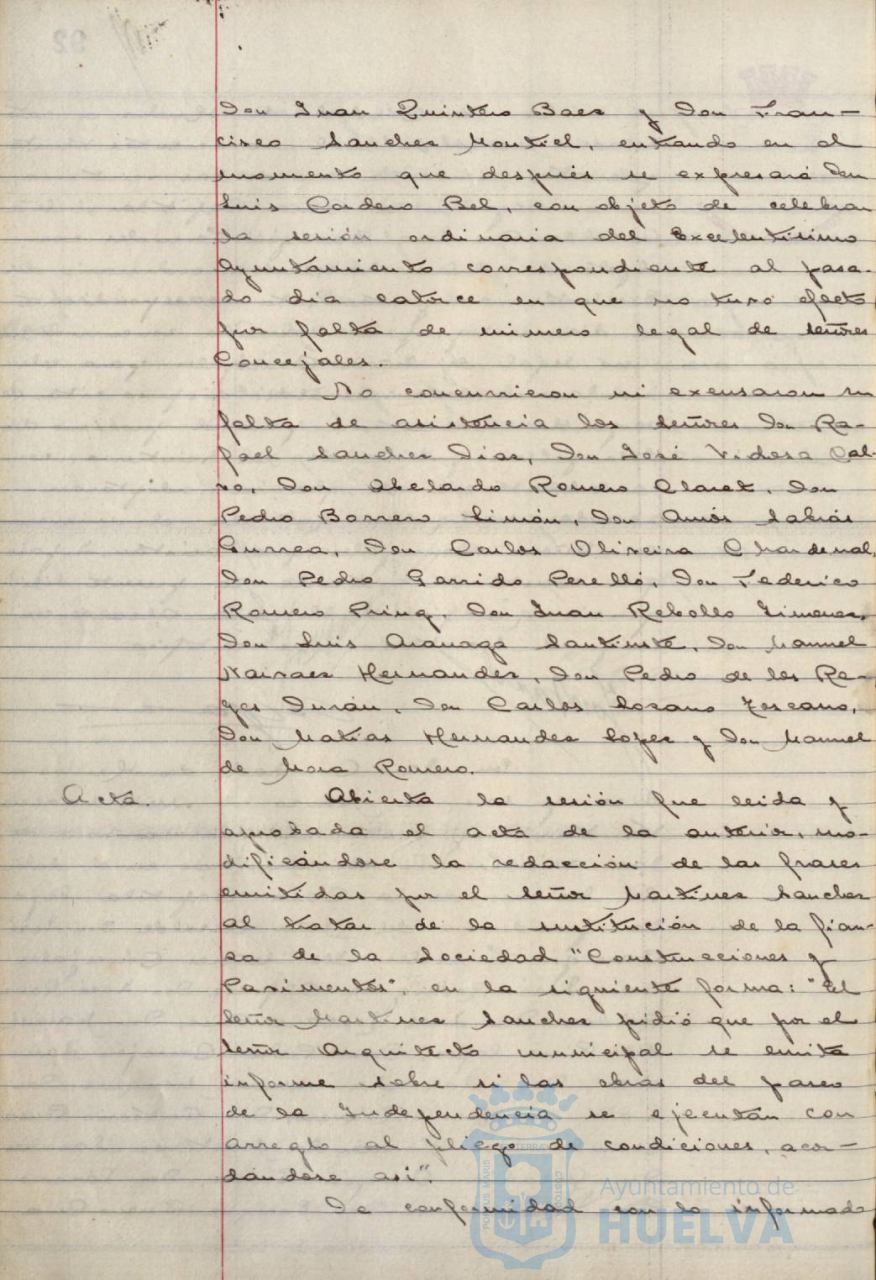 Don Juan Quintero Baez y Don Fran-
cisco Sanchez Montiel, entrando en el
momento que después se expresará Don
Luis Cordero Bel, con objeto de celebrar
la sesión ordinaria del Excelentísimo
Ayuntamiento correspondiente al pasa-
do dia catorce en que no tuvo efecto
por falta de número legal de señores
Concejales.
No concurrieron ni excusaron su
falta de asistencia los señores Don Ra-
fael Sanchez Diaz, Don José Vidosa Cal-
vo, Don Abelardo Romero Claret, Don
Pedro Borrero Limón, Don Amós Sabrás
Gurrea, Don Carlos Oliveira Chardenal,
Don Pedro Garrido Perelló, Don Federico
Romero Prinq, Don Juan Rebollo Jimenez,
Don Luis Aranaga Santiuste, Don Manuel
Narvaez Hernandez, Don Pedro de los Re-
yes Durán, Don Carlos Lozano Toscano,
Don Matías Hernandez Lopez y Don Manuel
de Mora Romero.
Acta. Abierta la sesión fue leida y
aprobada el acta de la anterior, mo-
dificándose la redacción de las frases
emitidas por el señor Martinez Sanchez
al tratar de la sustitución de la fian-
za de la Sociedad "Construcciones y
Pavimentos", en la siguiente forma: "El
señor Martinez Sanchez pidió que por el
señor Arquitecto municipal se emita
informe sobre si las obras del paseo
de la Independencia se ejecutan con
arreglo al pliego de condiciones, acor-
dándose así".
De conformidad con lo informado
Ayuntamiento de
HUELVA